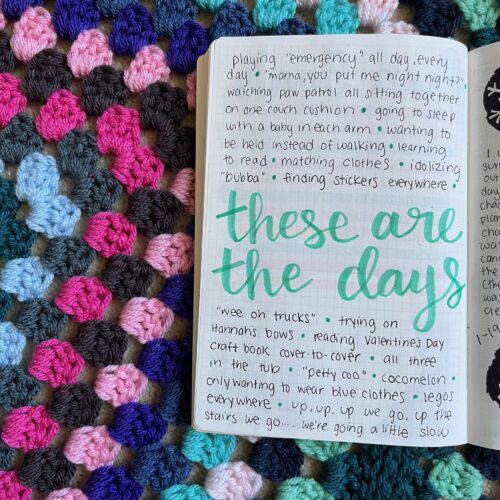 playing "emergency" all day, every
day • "mama, you put me night night?" •
watching paw patrol all sitting together
on one couch cushion • going to sleep
with a baby in each arm • wanting to
be held instead of walking • learning
to read • matching clothes • idolizing
"bubba" • finding stickers everywhere •
these are
the days
"wee oh trucks" • trying on
Hannahs bows • reading Valentines Day
Craft book cover-to-cover • all three
in the tub • "petty coo" • cocomelon •
only wanting to wear blue clothes • legos
everywhere • up, up, up we go, up the
stairs we go..... we're going a little slow